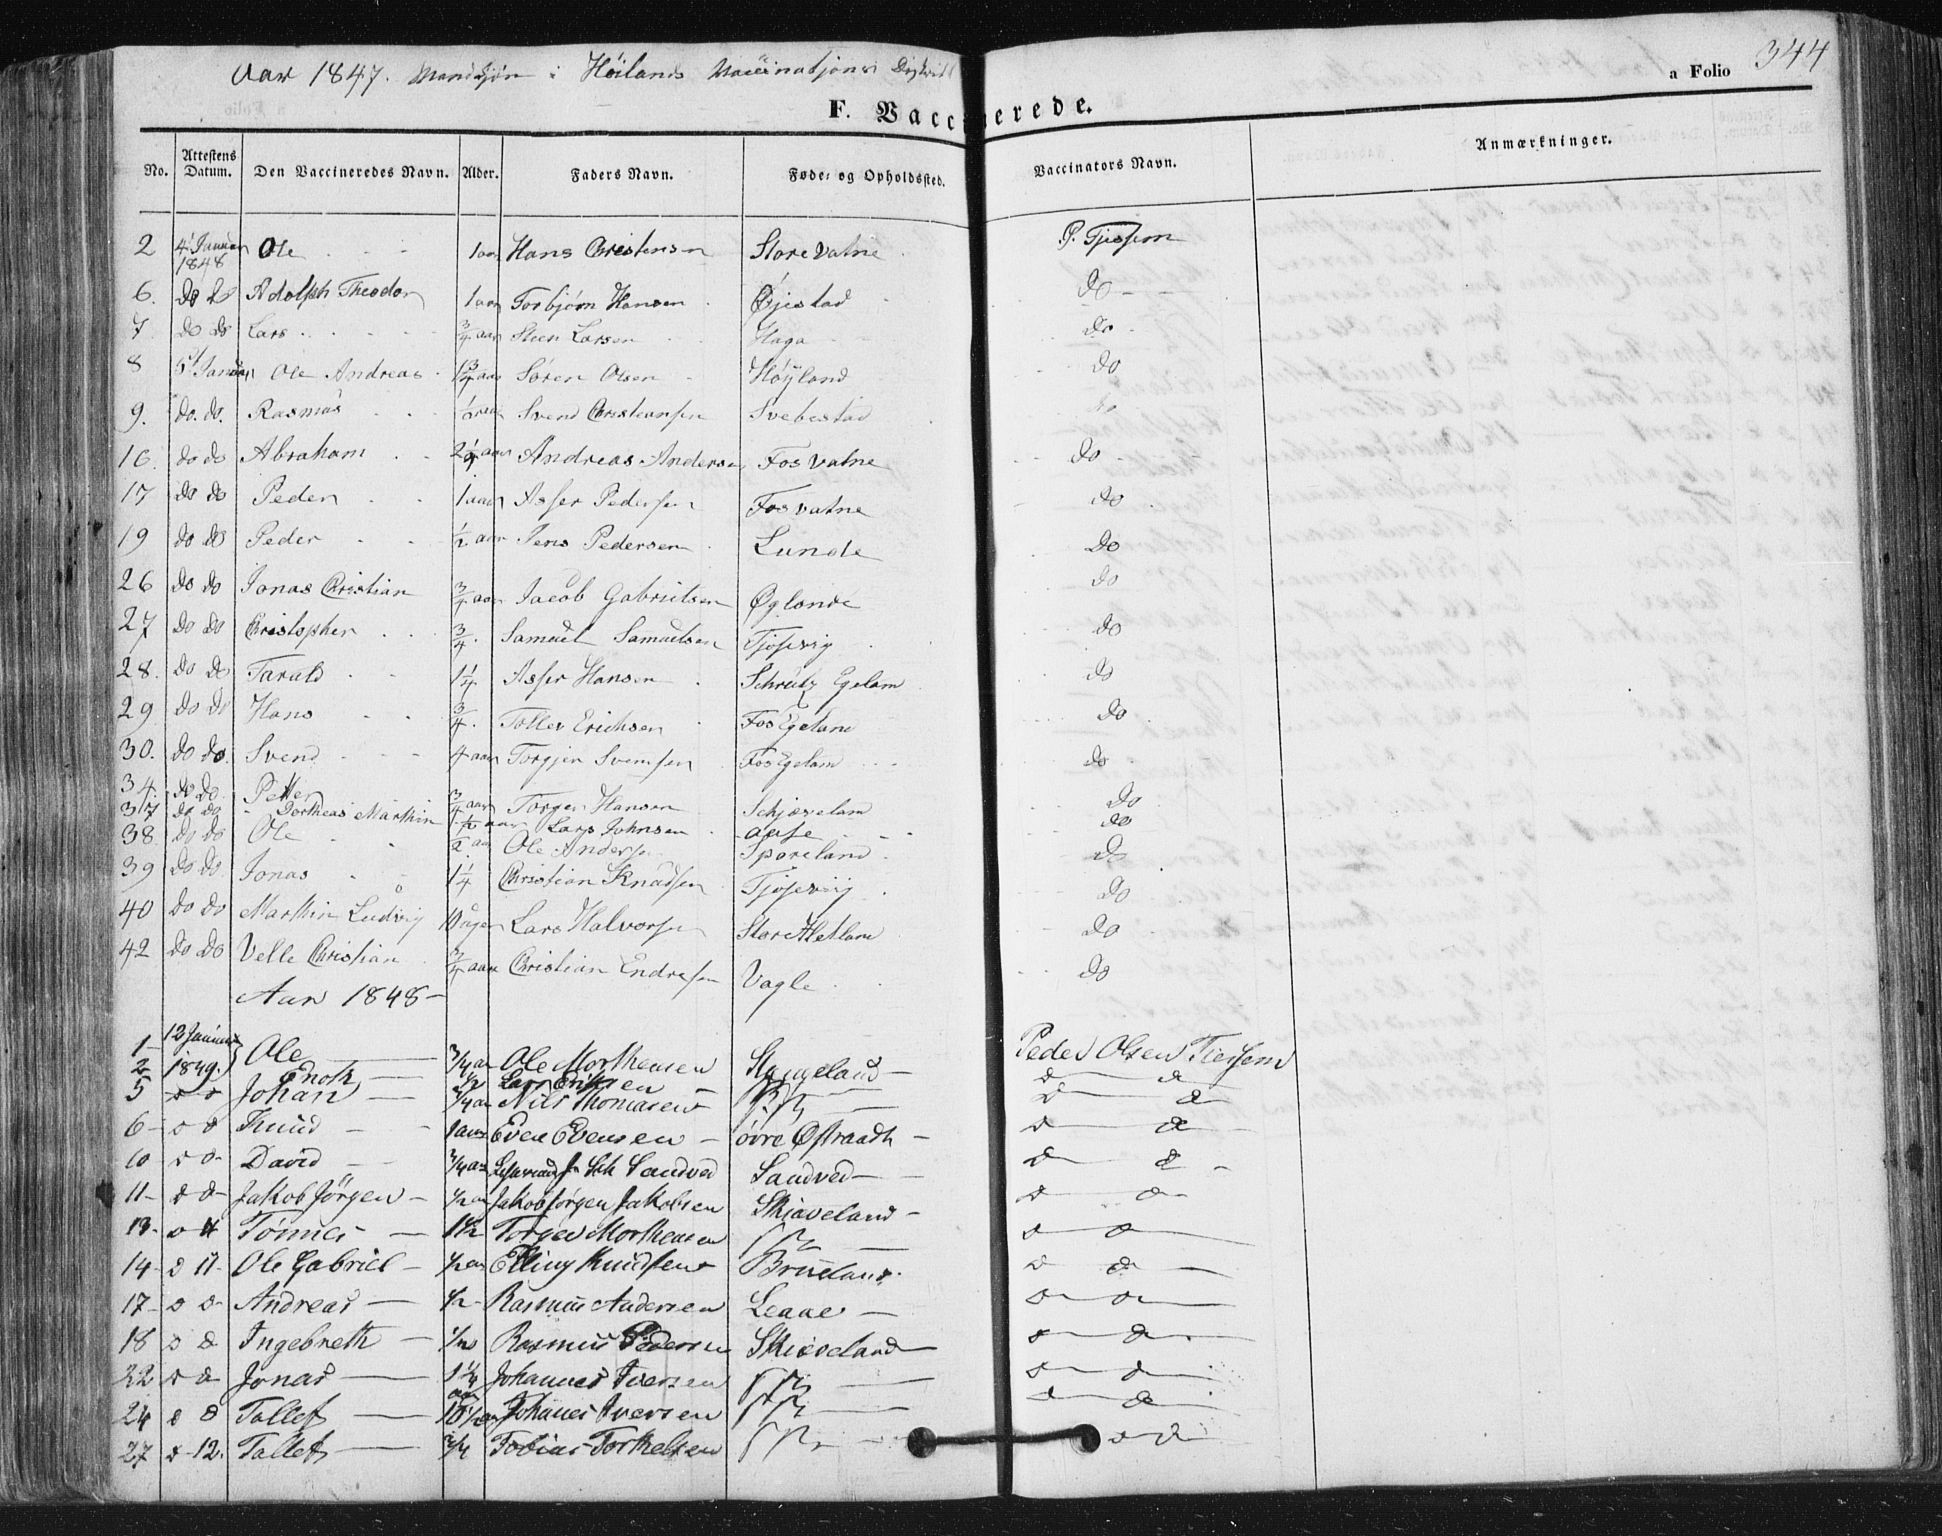 Aar 1847. Mandkjön i Höilands Vaccinations District
a Folio 344
F. Vaccinerede.
No. Attestens Datum. Den Vaccineredes Navn. Alder. Faders Navn. Føde- og Opholdssted. Vaccinators Navn. Anmærkninger.
2 4 Januar 1848 Ole 1 aar Hans Christensen Store Vatne P. Tjessem
6. do do Adolph Theodor 1 aar Torbjørn Hansen Øjestad do
7 do do Lars 3/4 aar Steen Larsen Haga do
8 5 Januar Ole Andreas 1 3/4 aar Søren Olsen Höyland do
9. do. do. Rasmus 1/2 aar Svend Christiansen Svebestad do
16. do do Abraham 2 1/4 aar Andreas Andersen Fos Vatne do
17 do do Peder 1 aar Asser Pedersen Fosvatne do
19 do do Peder 1/2 aar Jens Pedersen Lunde do
26 do do Jonas Christian 3/4 aar Jacob Gabrielsen Øglende do
27 do do Cristopher 3/4. Samuel Samuelsen Tjosevig do
28. do do Tarald 1 1/4 Asser Hansen Schrütz Egelam do
29 do do Hans 3/4. Tollev Erichsen Fos Egelam do
30. do do. Svend 4 aar Torgjer Svensen Fos Egelam do
34. do do. Petter 3/4 aar Torger Hansen Schjævelam do
37 do do Dortheas Marthin 1/2 aar Lars Johnsen do
38. do do Ole aar Ole Andersen Sporeland do
39 do do. Jonas 1 1/4 Christian Knudsen Tjosevig do
40 do do Marthin Ludvig 10 uger Lars Halvorsen Store Aletlam do
42 do do Velle Christian 3/4 aar Christian Endresen Vagle do
Aar 1848 -
1 - 12 Januar Ole 3/4 aar Ole Morthensen Stangeland Peder Olsen Tiessem
2 1849. Enok 1/2 Lars Eriksen
5 do do Johan 3/4 aar Nils Thomasen
6 - do do Knud 1 aar Even Evensen øvre Østraadt -
10 - do do David 3/4 aar Sandved Sandved -
11 - do do Jakob Jörgen - 1/2 aar Jakob Jørgen Jakobsen Skjæveland -
13 - do 11 Tönnes - 1 1/2 Torger Morthensen
14 - do 11 - Ole Gabriel - 1/2 aar Elling Knudsen Brueland.
17 - do do Andreas - 1/2 - Rasmus Andersen Leaae -
18 do do Ingebreth - 1/2 Rasmus Pedersen Skiæveland
22 do do Jonas - 1 1/4 Johannes Iversen
24 do do Tollef - Johanes Iversen
27 do 12. Tollef - 3/4 Tobias Torkelsen